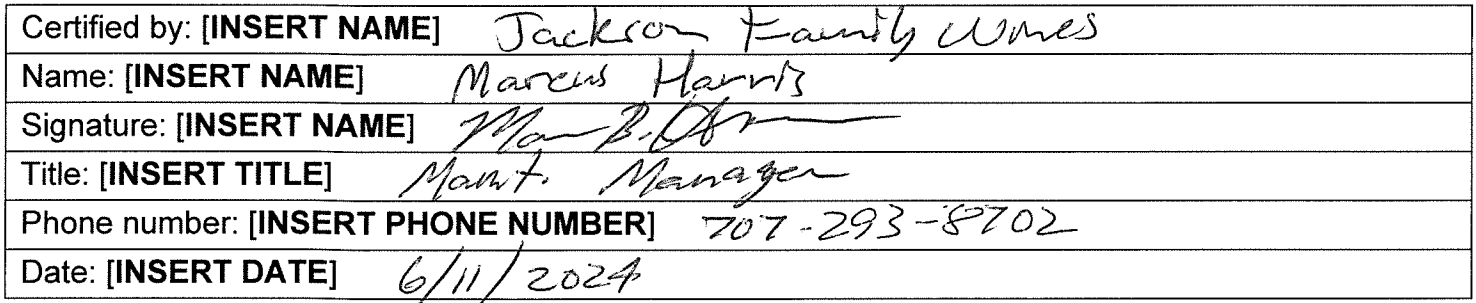 Certified by: [INSERT NAME] Jackson Family Wines
Name: [INSERT NAME] Marcus Harris
Signature: [INSERT NAME]
Title: [INSERT TITLE] Maint. Manager
Phone number: [INSERT PHONE NUMBER] 707-293-8702
Date: [INSERT DATE] 6/11/2024